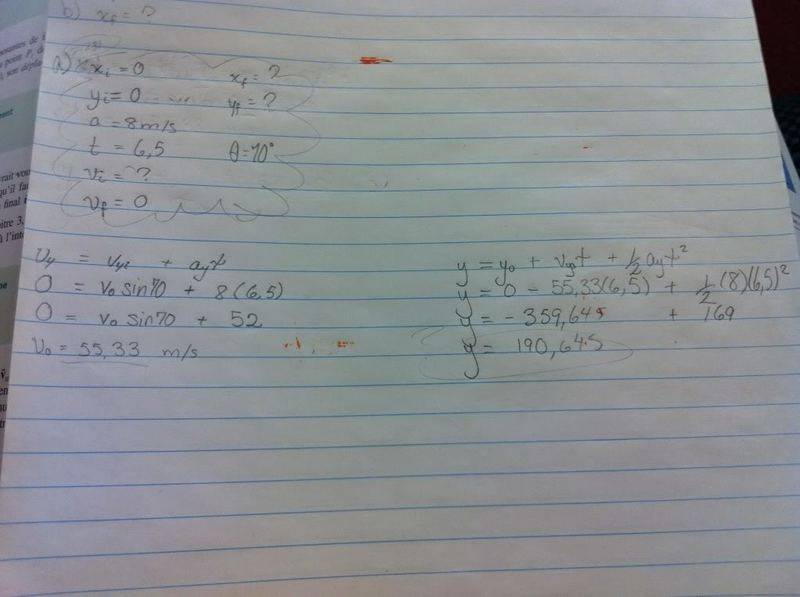 b) xf = ?
a) xi = 0 xf = ?
yi = 0 yf = ?
a = 8 m/s
t = 6,5 θ = 70°
vi = ?
vf = 0
vy = vyi + ayt
0 = v0 sin70 + 8(6,5)
0 = v0 sin70 + 52
v0 = 55,33 m/s
y = y0 + vyt + 1/2 ayt²
y = 0 - 55,33(6,5) + 1/2 (8)(6,5)²
y = - 359,645 + 169
y = 190,645